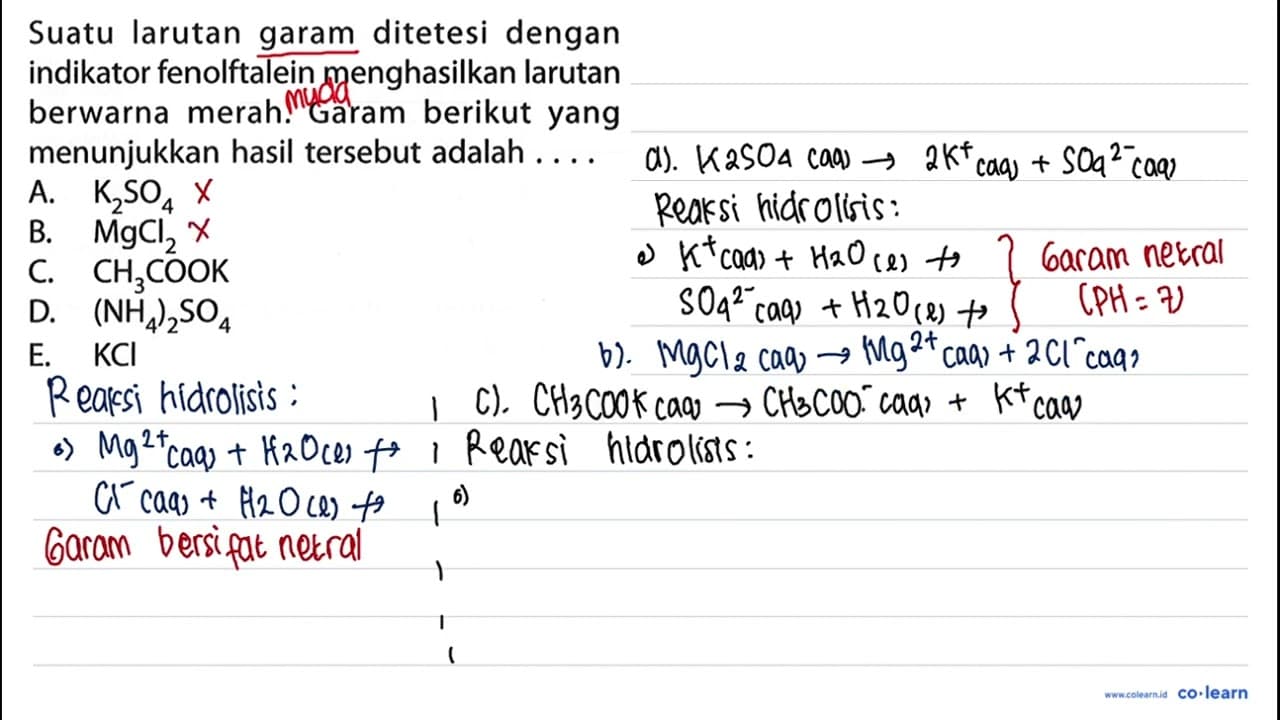 Suatu larutan garam ditetesi dengan
indikator fenolftalein menghasilkan larutan
berwarna merah. muda Garam berikut yang
menunjukkan hasil tersebut adalah . . . .
A. K₂SO₄ X
B. MgCl₂ X
C. CH₃COOK
D. (NH₄)₂SO₄
E. KCl
a). K2SO4 (aq) → 2K⁺ (aq) + SO4²⁻ (aq)
Reaksi hidrolisis:
•) K⁺ (aq) + H2O (l) ↛
SO4²⁻ (aq) + H2O (l) ↛
} Garam netral
(PH = 7)
b). MgCl2 (aq) → Mg²⁺ (aq) + 2Cl⁻ (aq)
Reaksi hidrolisis :
•) Mg²⁺ (aq) + H2O (l) ↛
Cl⁻ (aq) + H2O (l) ↛
Garam bersifat netral
c). CH3COOK (aq) → CH3COO⁻ (aq) + K⁺ (aq)
Reaksi hidrolisis :
•)
www.colearn.id co·learn